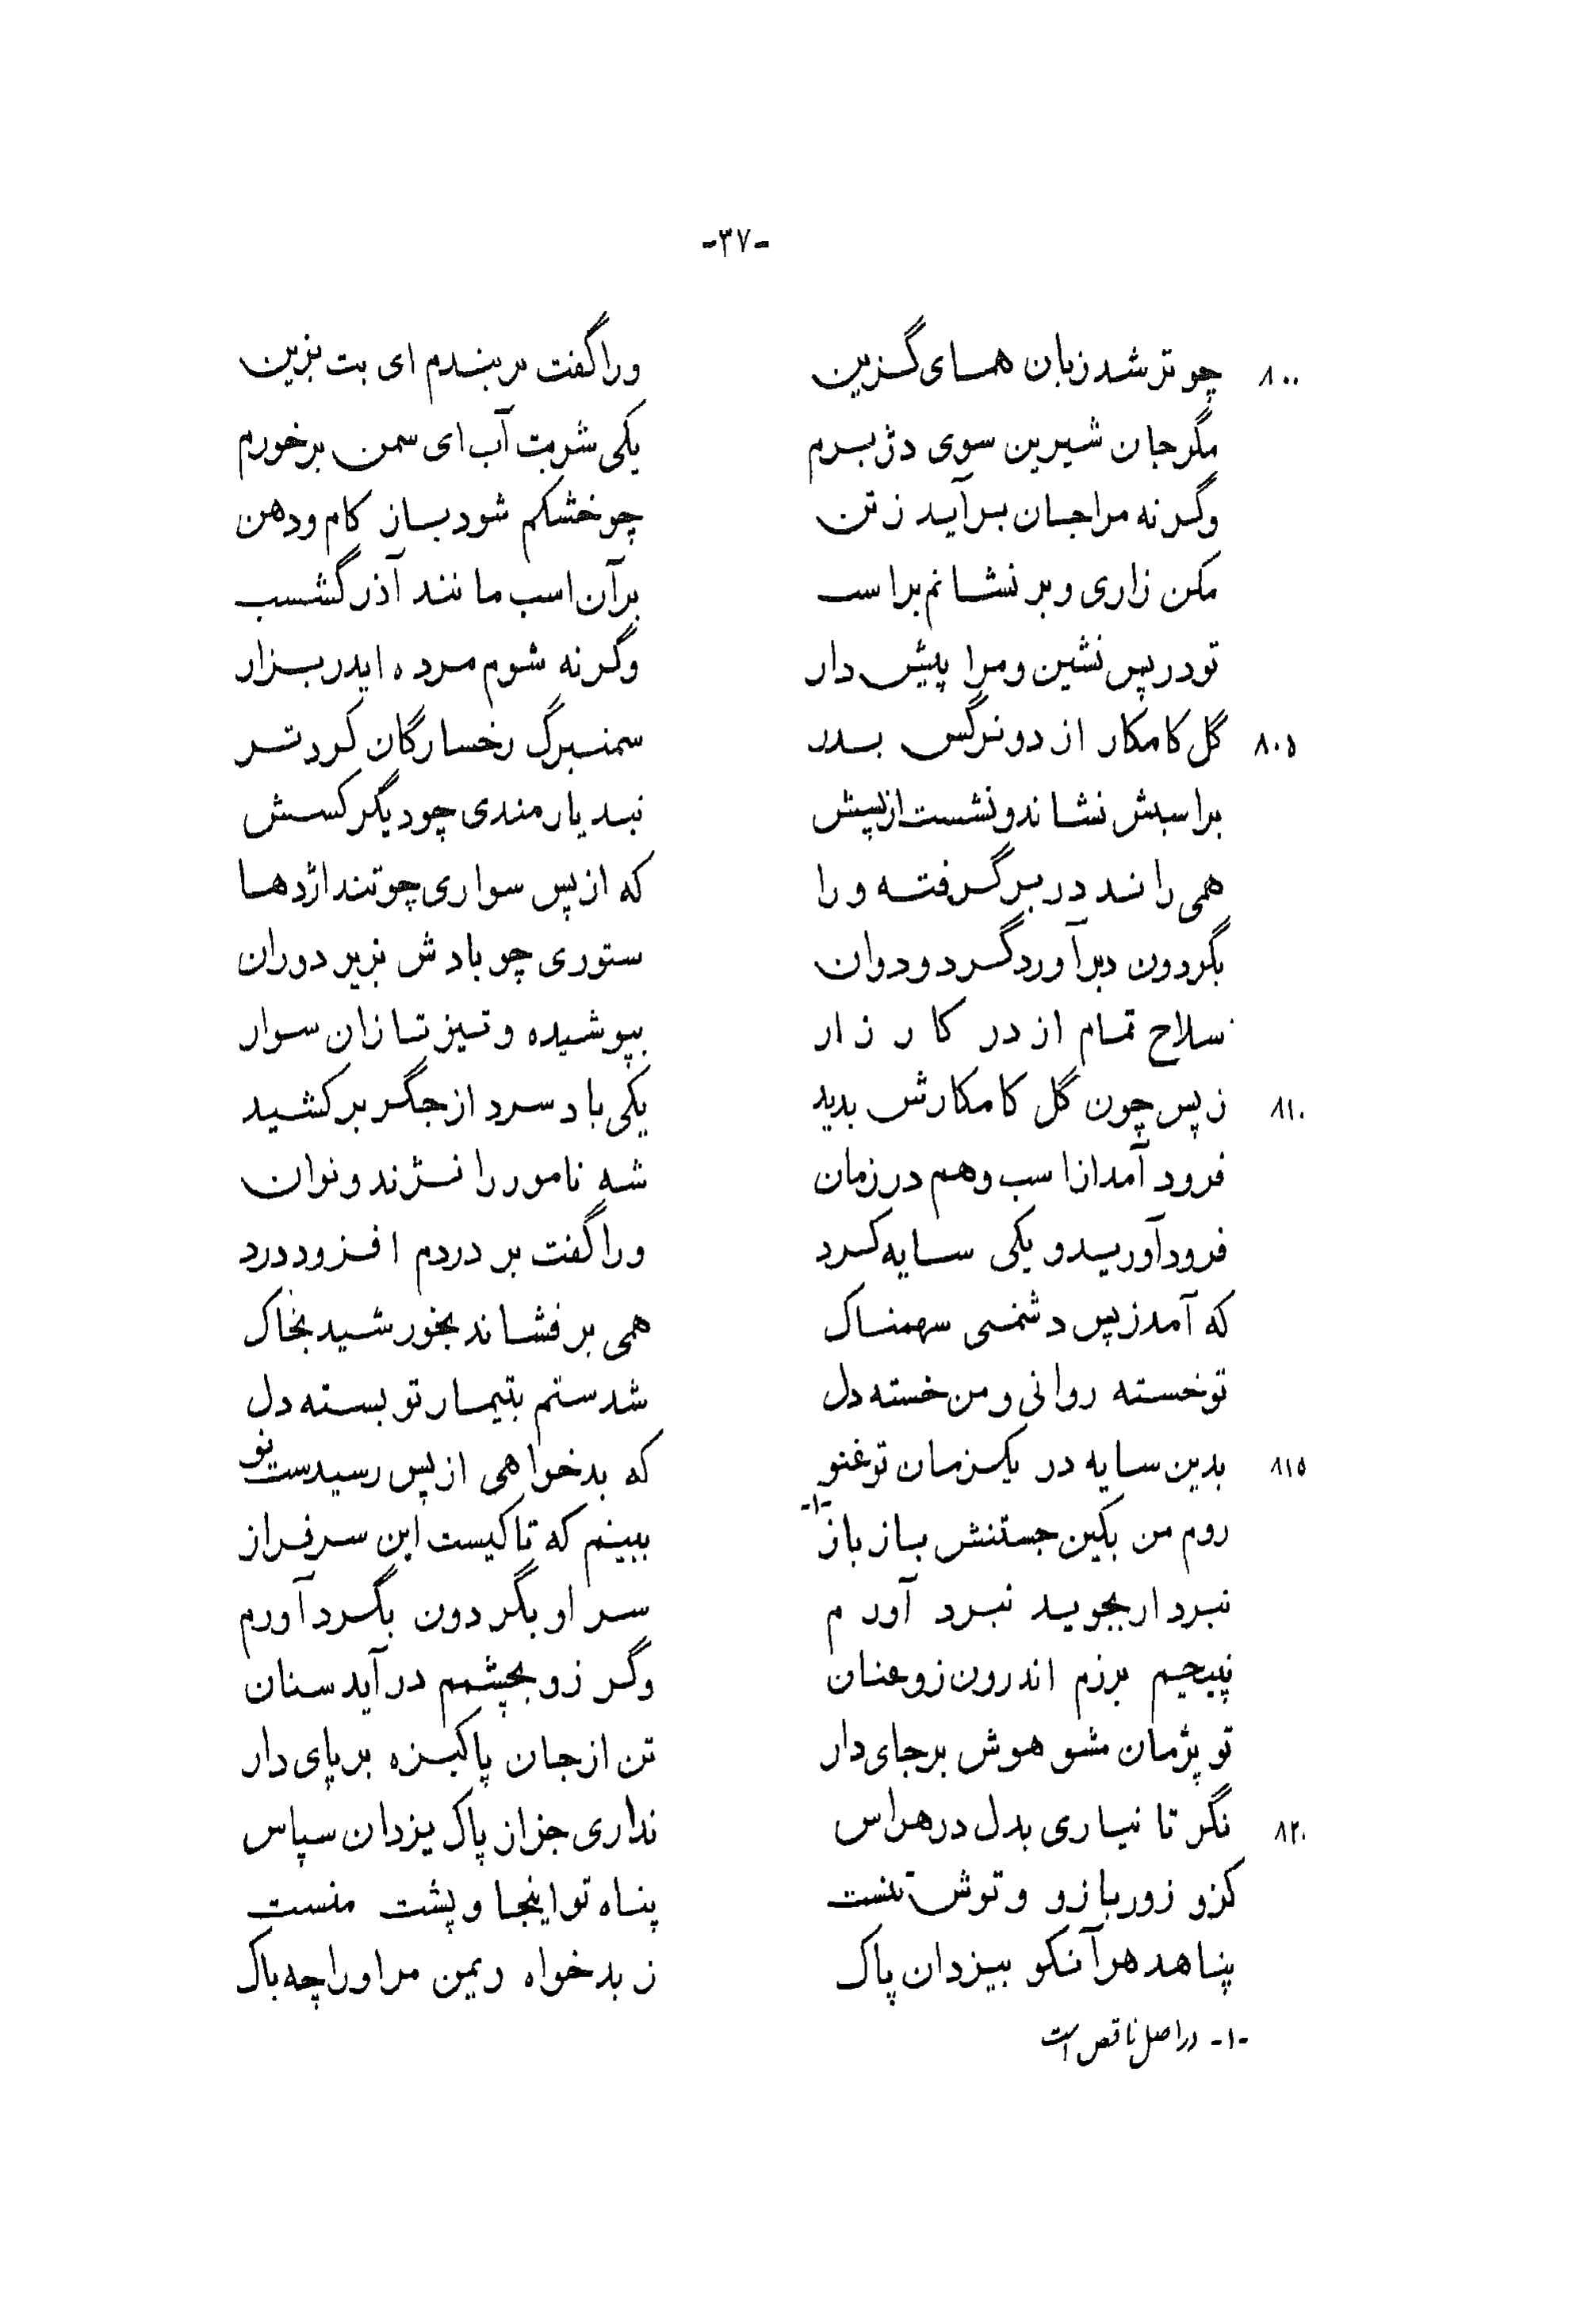 -۳۷-
۸۰۰ چو تر شد زبان همای گزین ورا گفت بر بندم ای بت بزین
مگر جان شیرین سوی دژ برم یکی شربت آب ای سمن برخورم
وگر نه مرا جان برآید ز تن چو خشکم شود باز کام و دهن
مکن زاری و بر نشانم براسب بر آن اسب مانند آذر گشسب
تو در پس نشین و مرا پیش دار وگر نه شوم مرده ایدر بزار
۸۰۵ گل کامکار از دو نرگس بدر سمنبرگ رخسارگان کرد تر
بر اسبش نشاند و نشست از پسش نبد یارمندی چو دیگر کسش
همی راند در بر گرفته و را که از پس سواری چو تند اژدها
بگردون برآورد گرد و دوان ستوری چو بادش بزیر دوران
سلاح تمام از در کار زار بپوشیده و تیز تازان سوار
۸۱۰ ز پس چون گل کامکارش بدید یکی باد سرد از جگر بر کشید
فرود آمد از اسب و هم در زمان شه نامور را نژند و نوان
فرود آورید و یکی سایه کرد ورا گفت بر دردم افزود درد
که آمد ز پس دشمنی سهمناک همی بر فشاند بخورشید بخاک
تو خسته روانی و من خسته دل شدستم بتیمار تو بسته دل
۸۱۵ بدین سایه در یکزمان تو غنو که بدخواهی از پس رسیدست نو
روم من بکین جستنش باز باز -۱- ببینم که تا کیست این سرفراز
نبرد ار بجوید نبرد آورم سر او بگردون بگرد آورم
نپیچیم برزم اندرون زو عنان وگر زو بچشمم درآید سنان
تو پژمان مشو هوش بر جای دار تن از جان پاکیزه بر پای دار
۸۲۰ نگر تا نیاری بدل در هراس نداری جز از پاک یزدان سپاس
کزو زور بازو و توش تنست پناه تو اینجا و پشت منست
پناهد هر آنکو بیزدان پاک ز بدخواه ریمن مر اورا چه باک
-۱- در اصل ناقص است